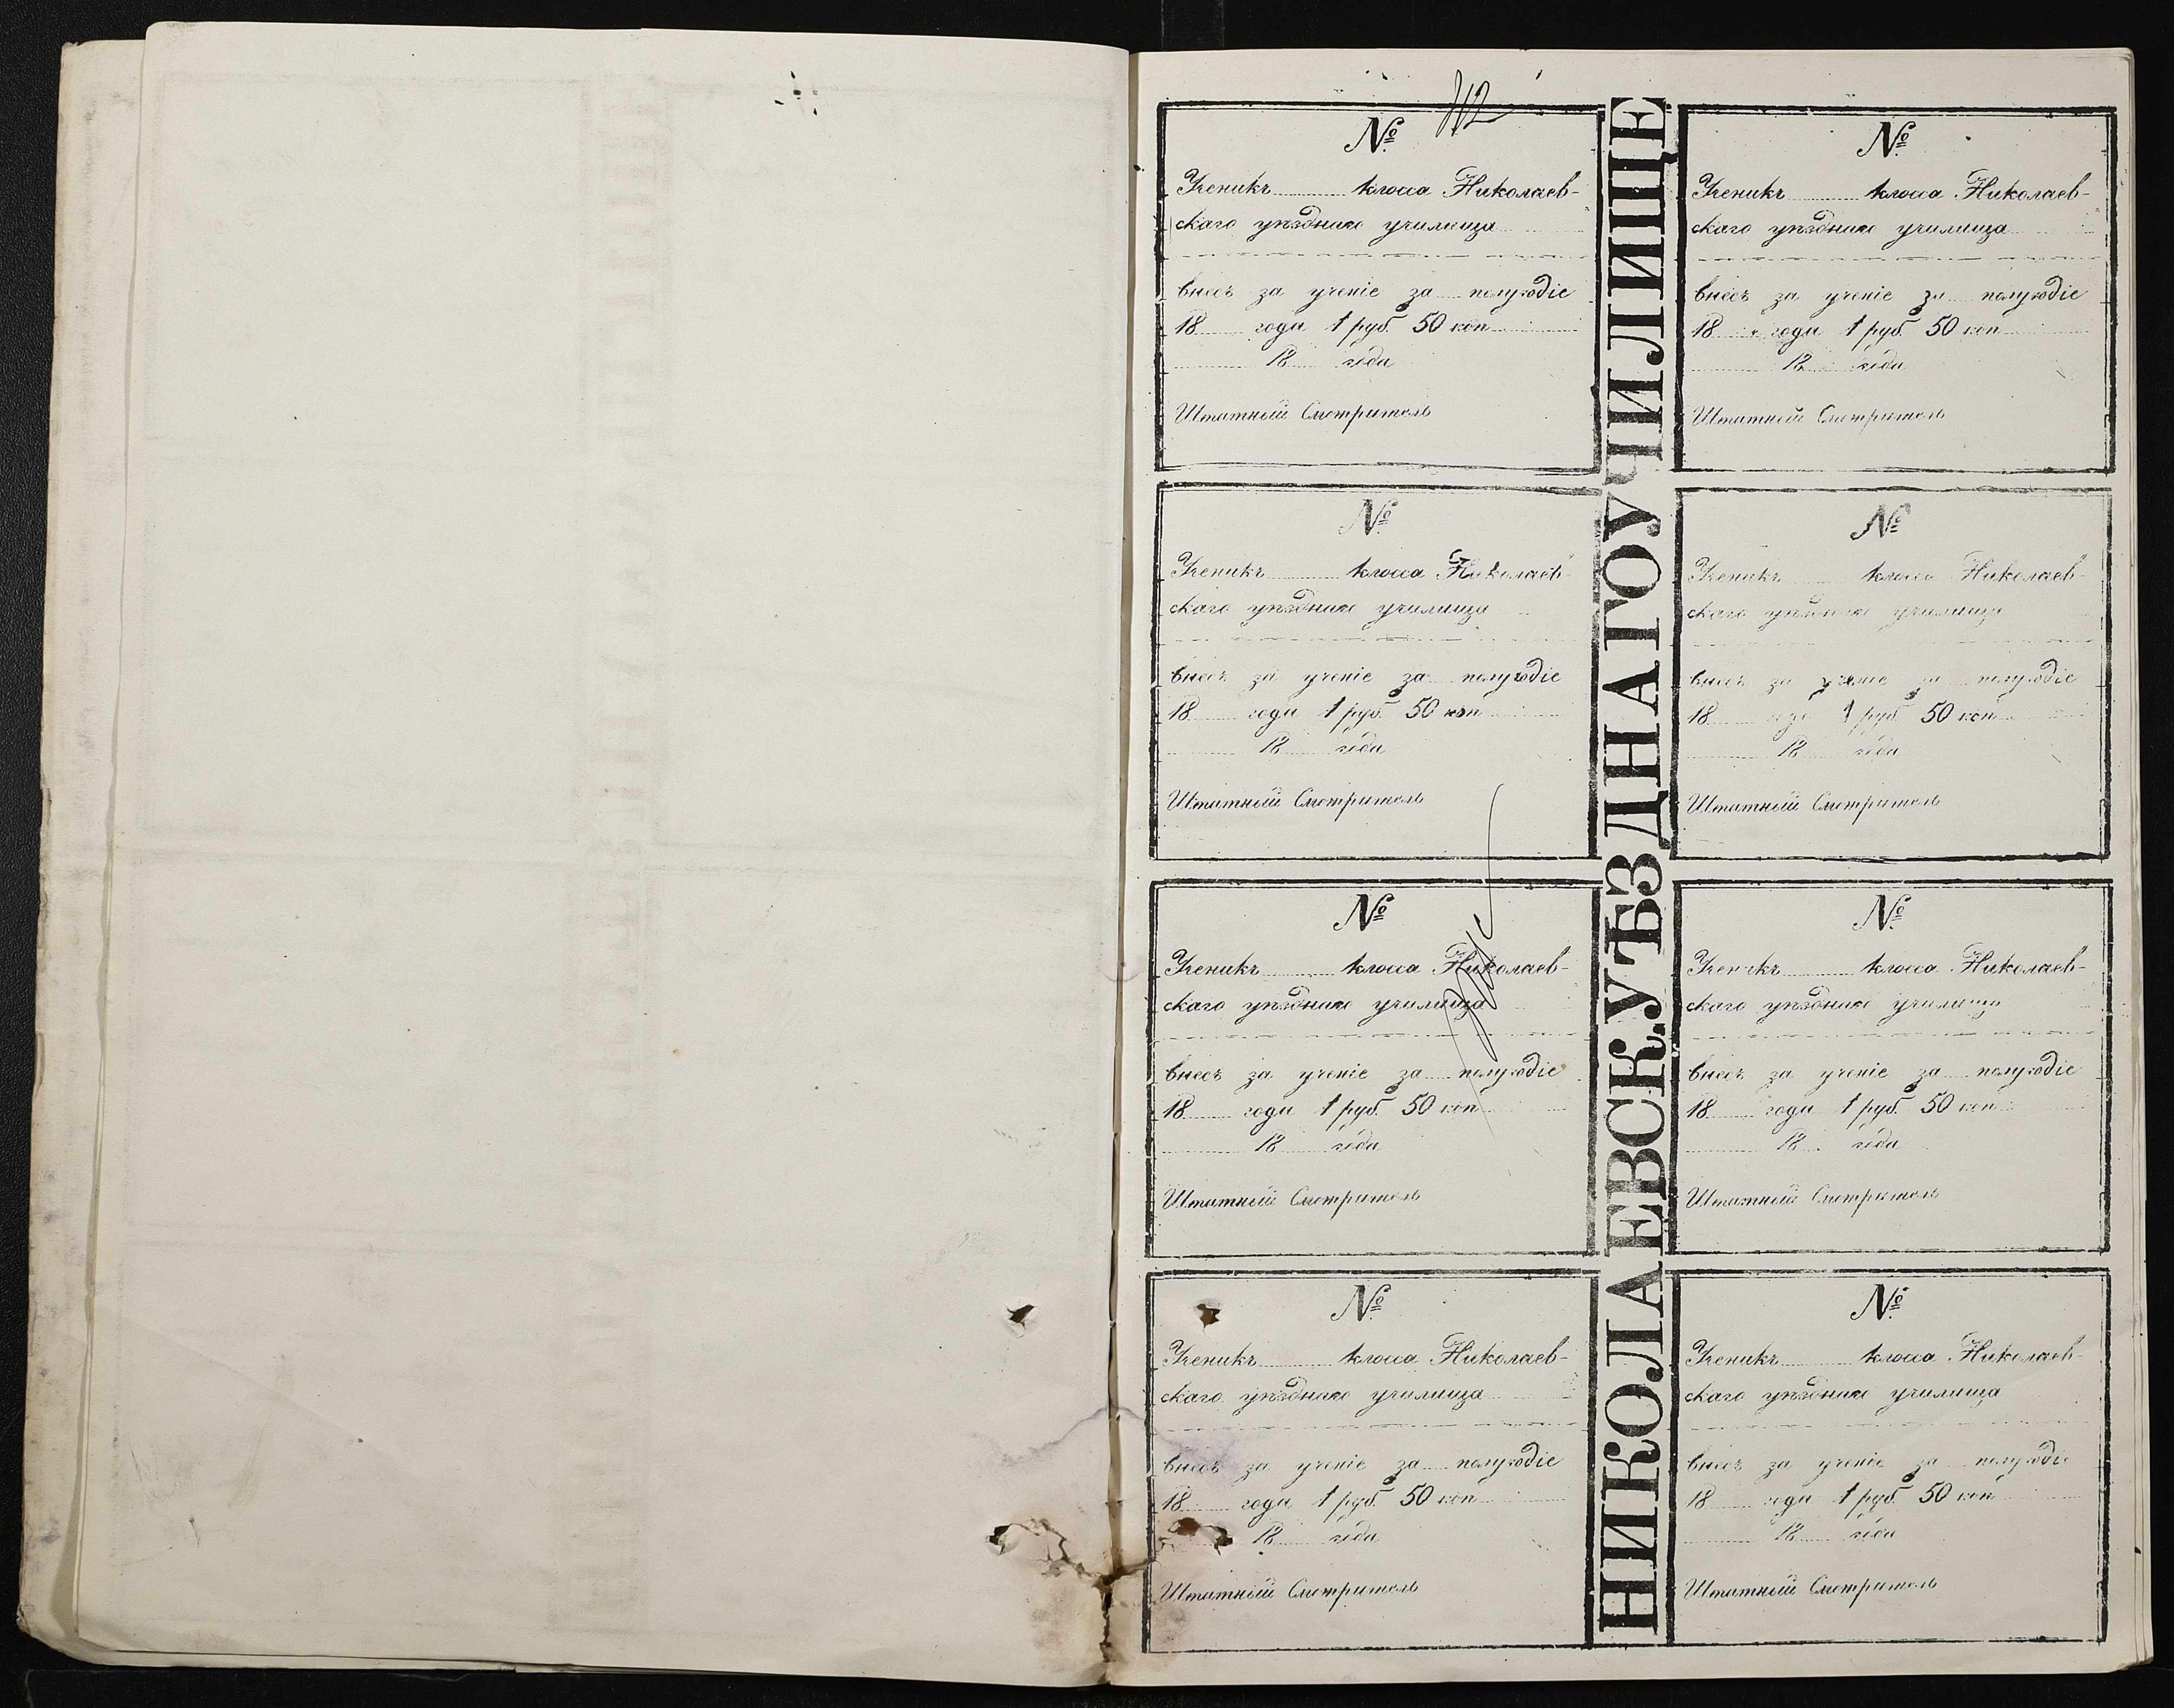 №
Ученикъ класса Николаев-
скаго уѣзднаго училища
внесъ за ученіе за полугодіе
18 года 1 руб. 50 коп
18 года
Штатный Смотритель
№
Ученикъ класса Николаев-
скаго уѣзднаго училища
внесъ за ученіе за полугодіе
18 года 1 руб. 50 коп
18 года
Штатный Смотритель
№
Ученикъ класса Николаев-
скаго уѣзднаго училища
внесъ за ученіе за полугодіе
18 года 1 руб. 50 коп
18 года
Штатный Смотритель
№
Ученикъ класса Николаев-
скаго уѣзднаго училища
внесъ за ученіе за полугодіе
18 года 1 руб. 50 коп
18 года
Штатный Смотритель
НИКОЛАЕВСК. УѢЗДНАГО УЧИЛИЩЕ
№
Ученикъ класса Николаев-
скаго уѣзднаго училища
внесъ за ученіе за полугодіе
18 года 1 руб. 50 коп
18 года
Штатный Смотритель
№
Ученикъ класса Николаев-
скаго уѣзднаго училища
внесъ за ученіе за полугодіе
18 года 1 руб. 50 коп
18 года
Штатный Смотритель
№
Ученикъ класса Николаев-
скаго уѣзднаго училища
внесъ за ученіе за полугодіе
18 года 1 руб. 50 коп
18 года
Штатный Смотритель
№
Ученикъ класса Николаев-
скаго уѣзднаго училища
внесъ за ученіе за полугодіе
18 года 1 руб. 50 коп
18 года
Штатный Смотритель